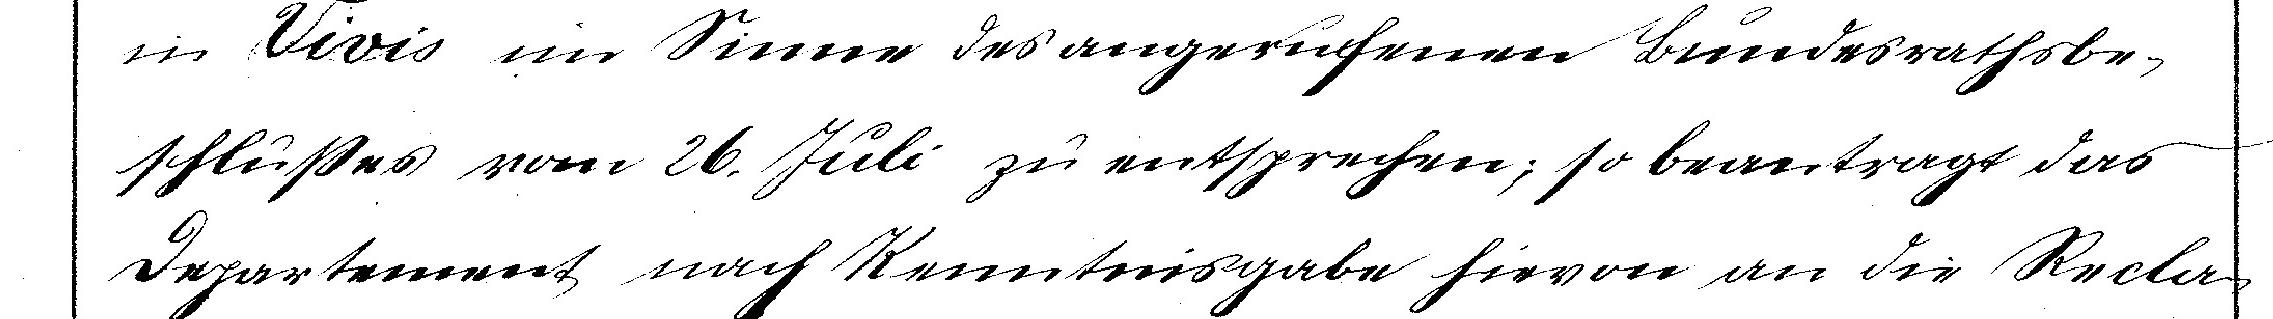 in Vivis im Sinne des angerufenen Bundesrathsbe-
schlußes vom 26. Juli zu entsprechen; so beantragt das
Departement nach Kenntnisgabe hievon an die Recla-